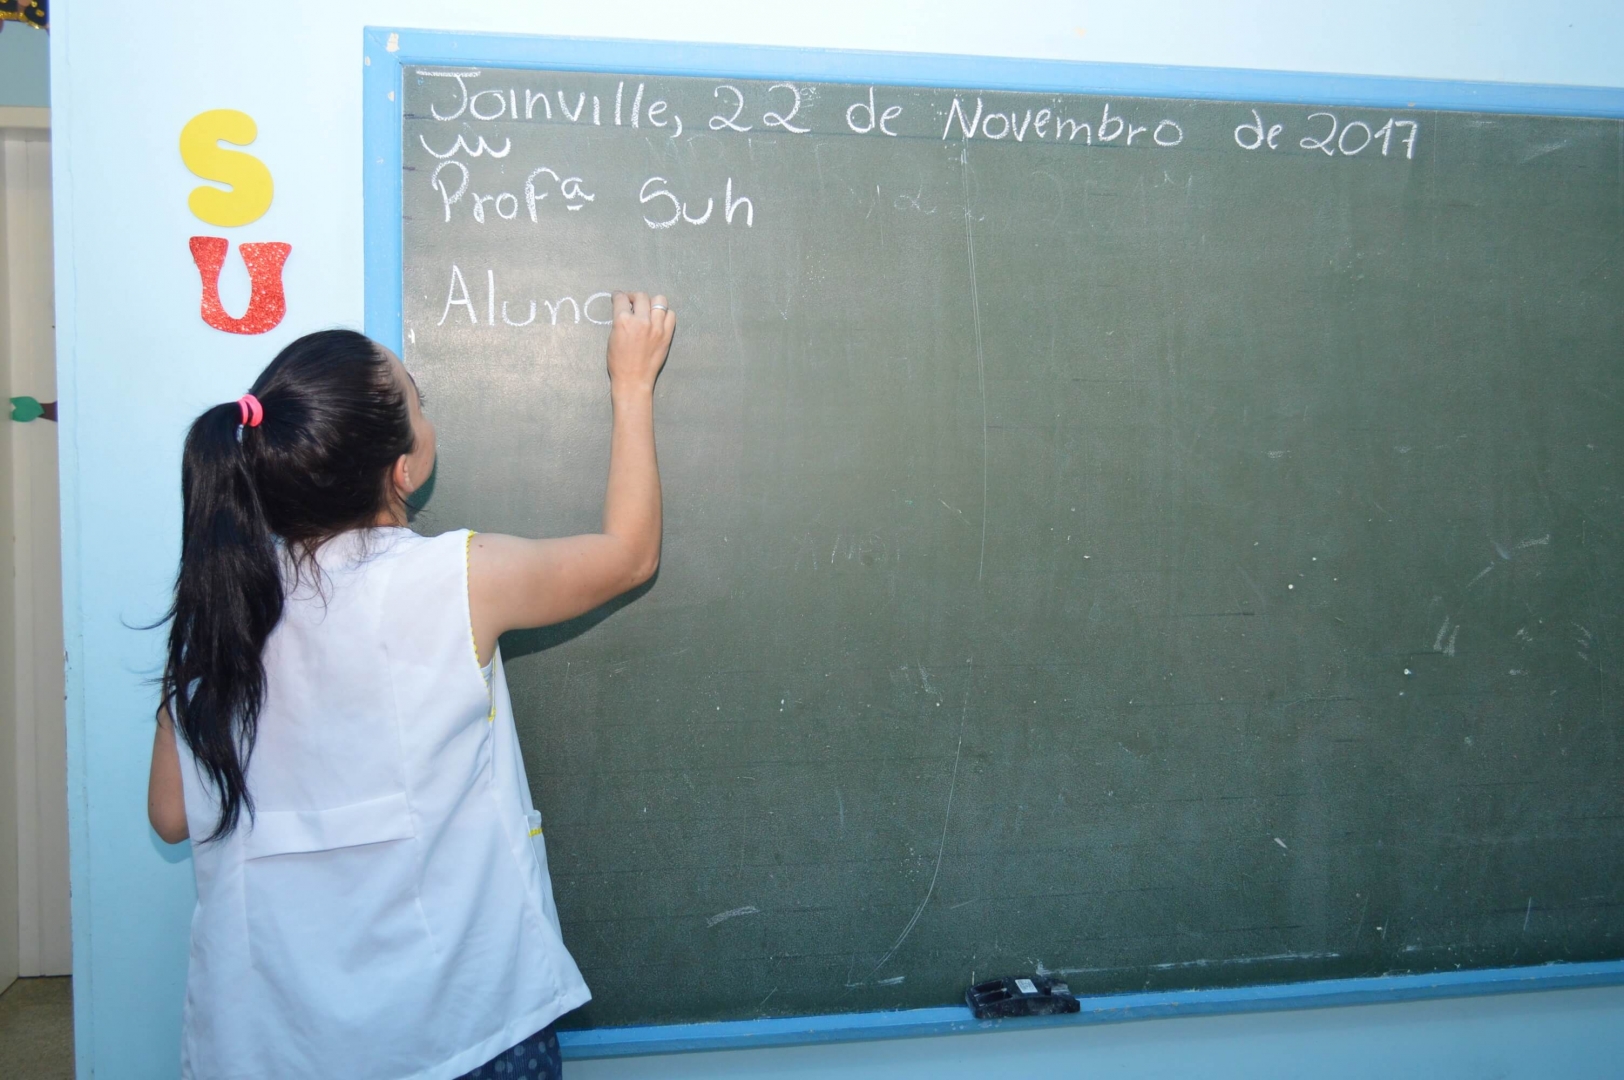 S
U
Joinville, 22 de Novembro de 2017
Profª Suh
Aluno